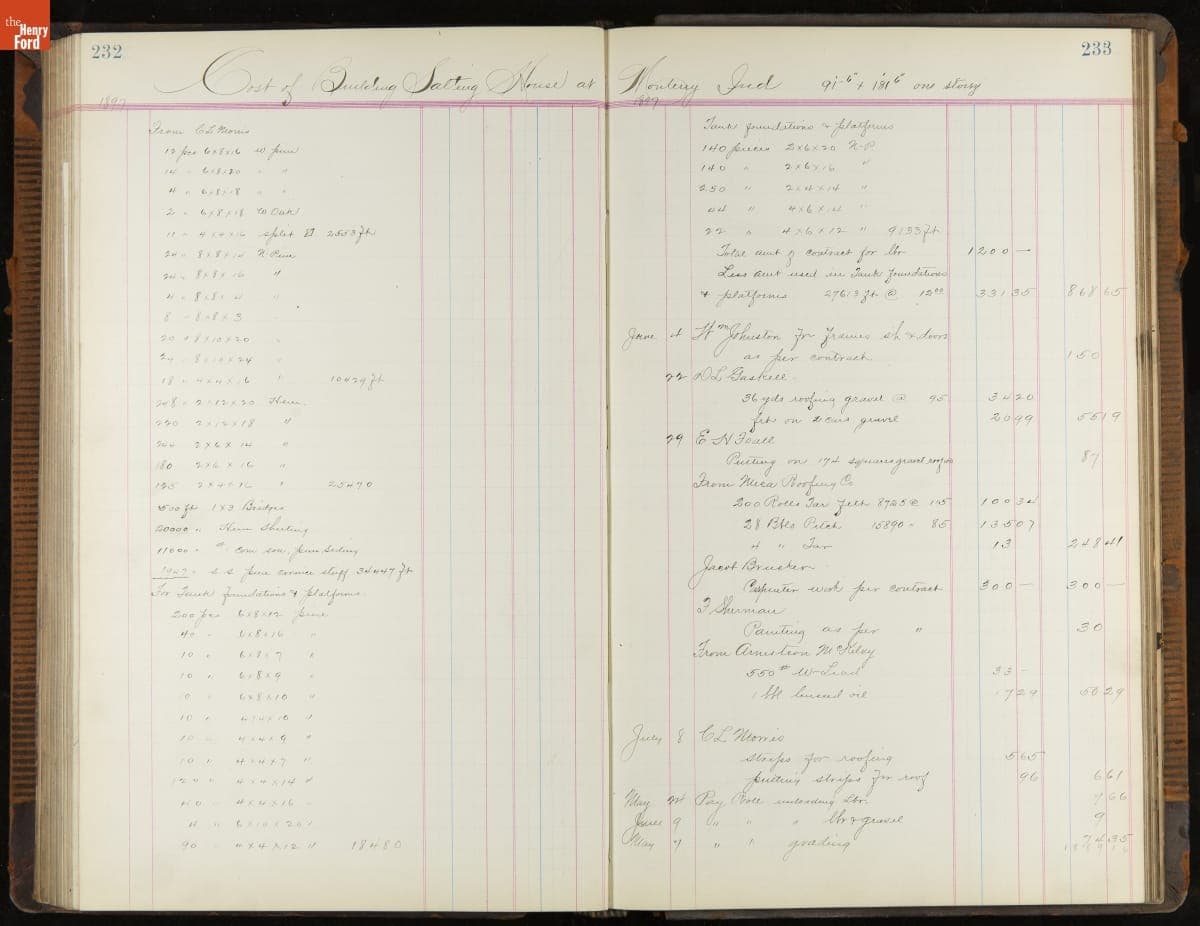 the Henry Ford
232
Cost of Building Salting House at
1897
From C L Morris
12 pcs 6x8x16 w pine
14 " 6x8x20 " "
4 " 6x8x18 " "
2 " 6x8x18 W Oak
11 " 4x4x16 split 2553 ft
24 " 8x8x14 N. Pine
24 " 8x8x16 "
4 " 8x8x "
8 " 8x8x3
20 " 8x10x20 "
24 " 8x10x24 "
18 " 4x4x16 " 10429 ft
208 " 2x12x20 Hem
220 2x12x18 "
244 2x6x14 "
180 2x6x16 "
125 2x4x16 " 25470
500 ft 1x3 Bridges
20000 " Hem Sheeting
11000 " com pine Siding
1947 " s s pine cornice stuff 34447 ft
For Tank foundations & platforms
200 pcs 6x8x12 pine
40 " 6x8x16 "
10 " 6x8x7 "
10 " 6x8x9 "
10 " 6x8x10 "
10 " 4x4x10 "
10 " 4x4x9 "
10 " 4x4x7 "
120 " 4x4x14 "
4x4x16 "
4 " 6x10x20 "
90 " 4x4x12 " 18480
233
Monterey Ind 91-6" + 181 6" one story
1897
Tank foundations & platforms
140 pieces 2x6x20 N.P.
140 " 2x6x16 "
250 " 2x4x14 "
44 " 4x6x14 "
22 " 4x6x12 " 9133 ft
Total amt of contract for lbr 1200 —
Less amt used in Tank foundations
& platforms 27613 ft @ 12 00 331 35 868 65
June 4 Wm Johnston for frames sh & doors
as per contract 150
22 D L Gaskell
36 yds roofing gravel @ 95 34 20
frt on 2 cars gravel 20 99 55 19
29 E N
Putting on 174 squares gravel roofing 87
From Mica Roofing Co
200 Rolls Tar felt 8725 @ 115 100 34
28 Bbls Pitch 15890 " 85 135 07
4 " Tar 13 248 41
Jacob Brucker
Carpenter work per contract 300 — 300 —
F Sherman
Painting as per " 30
From Armstrong McKelvy
550 # W-Lead 33 -
1 bbl linseed oil 17 29 50 29
July 8 C L Morris
strips for roofing 5 65
putting strips for roof 96 6 61
May 24 Pay Roll unloading Lbr. 7 66
June 9 " " " lbr & gravel 9
May 7 " " grading 74 35